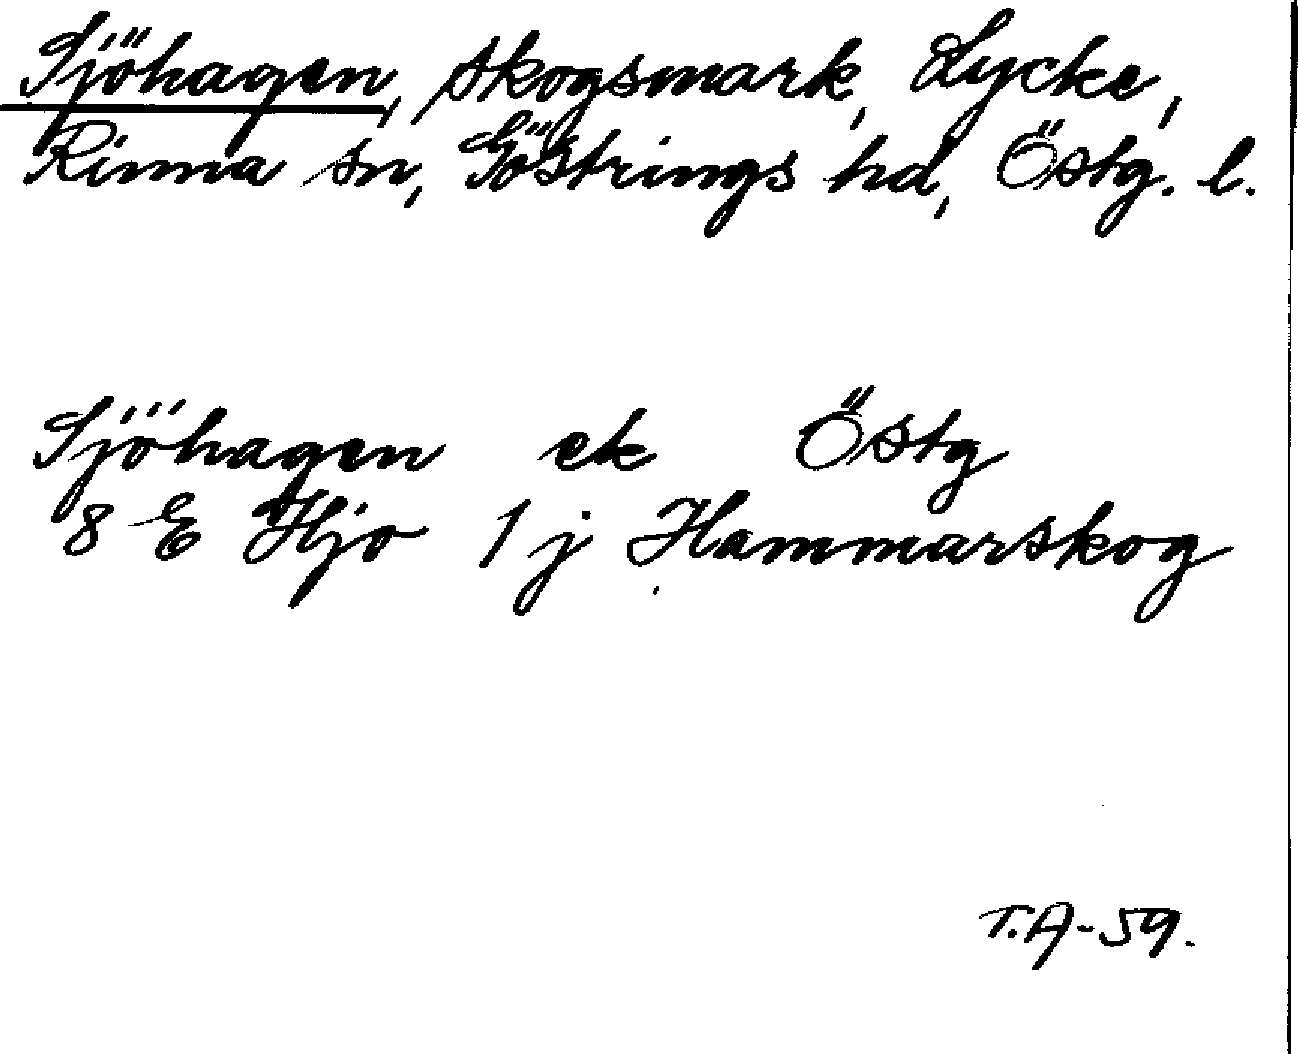 Sjöhagen, skogsmark, Lycke,
Rinna sn, Göstrings hd, Östg. l.
Sjöhagen ek Östg
8 E Hjo 1 j Hammarskog
T.A-59.